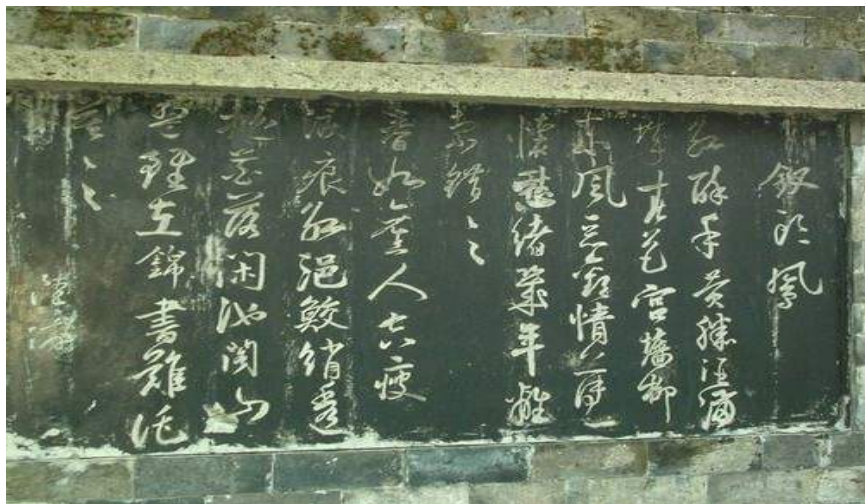 釵頭鳳
紅酥手黃縢酒滿
城春色宮牆柳
東風惡歡情薄一
懷愁緒幾年離
索錯〻〻
春如舊人空瘦
淚痕紅浥鮫綃透
桃花落閑池閣山
盟雖在錦書難托
莫〻〻
陸游